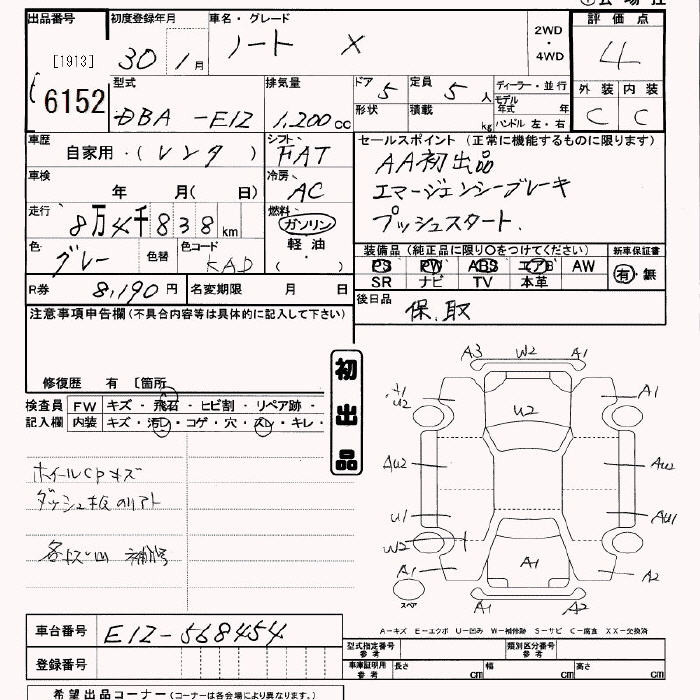 出品番号
初度登録年月
車名・グレード
2WD
・
4WD
評価点
[1913]
30年 1月
ノート X
4
6152
型式
DBA - E12
排気量
1,200cc
ドア
5
定員
5人
ディーラー・並行
形状
積載
kg
モデル年式 年
ハンドル 左・右
外装
内装
C
C
車歴
自家用・(レンタ)
シフト
FAT
セールスポイント (正常に機能するものに限ります)
AA初出品
エマージェンシーブレーキ
プッシュスタート
車検
年 月( 日)
冷房
AC
走行
8万4千838km
燃料
ガソリン
軽油
( )
色
グレー
色替
色コード
KAD
装備品 (純正品に限り○をつけてください)
新車保証書
PS PW ABS エアB AW
SR ナビ TV 本革
有・無
R券
8,190円
名変期限 月 日
後日品
保、取
注意事項申告欄(不具合内容等は具体的に記入して下さい)
修復歴 有 〔箇所
初出品
検査員
記入欄
FW
キズ・飛石・ヒビ割・リペア跡・
内装
キズ・汚レ・コゲ・穴・スレ・キレ・
ホイールCPキズ
A3 W2 A1
U2 A1
U2
AU2 AU2
U1 AU1
W2
A1 A1 A2
スペア
A1 A2
A-キズ E-エクボ U-凹み W-補修跡 S-サビ C-腐食 XX-交換済
車台番号
E12-568454
登録番号
型式指定番号
参考
類別区分番号
参考
車庫証明用
参考
長さ cm
幅 cm
高さ cm
希望出品コーナー (コーナーは各会場により異なります。)